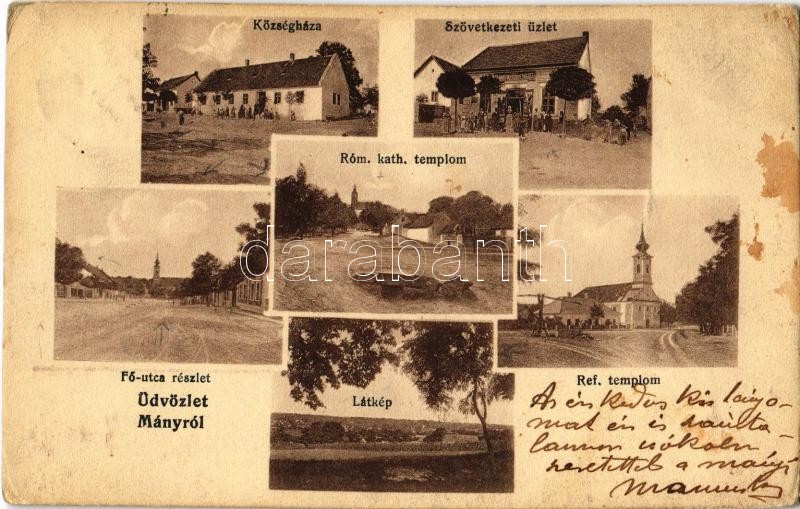 Községháza
Szövetkezeti üzlet
Róm. kath. templom
darabanth
Fő-utca részlet
Ref. templom
Üdvözlet
Mányról
Látkép
Az én kedves kis lányo-
mat én is
csókolom
szeretettel a mányi